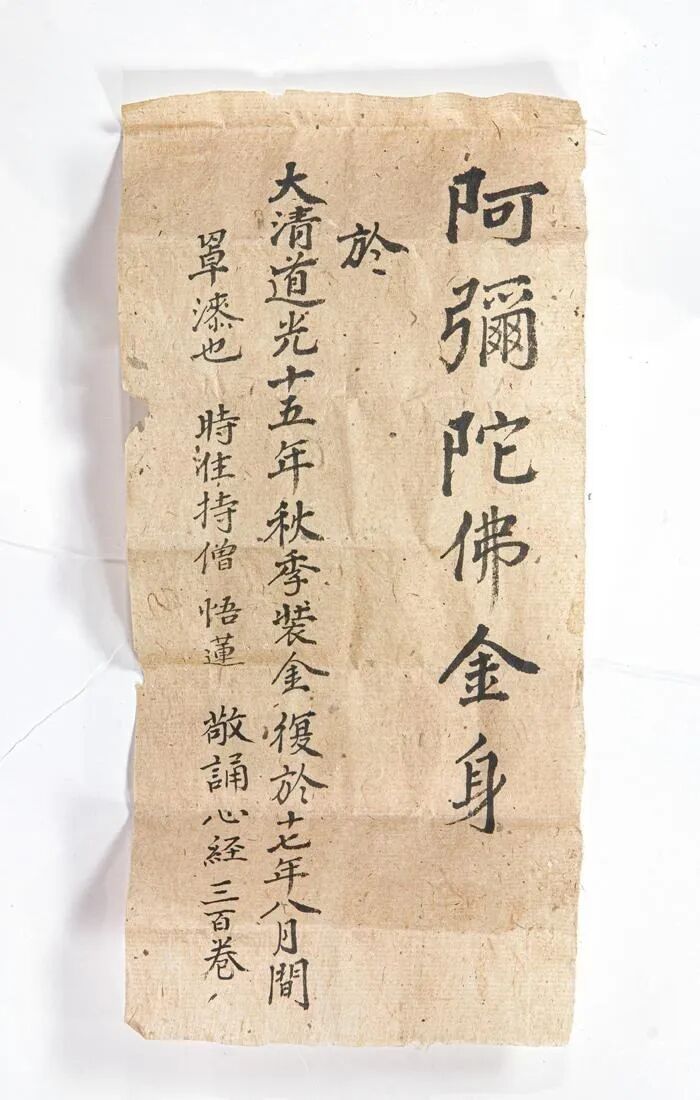 阿彌陀佛金身
於
大清道光十五年秋季裝金復於十七年八月間
罩漆也 時住持僧 悟蓮 敬誦心経三百卷